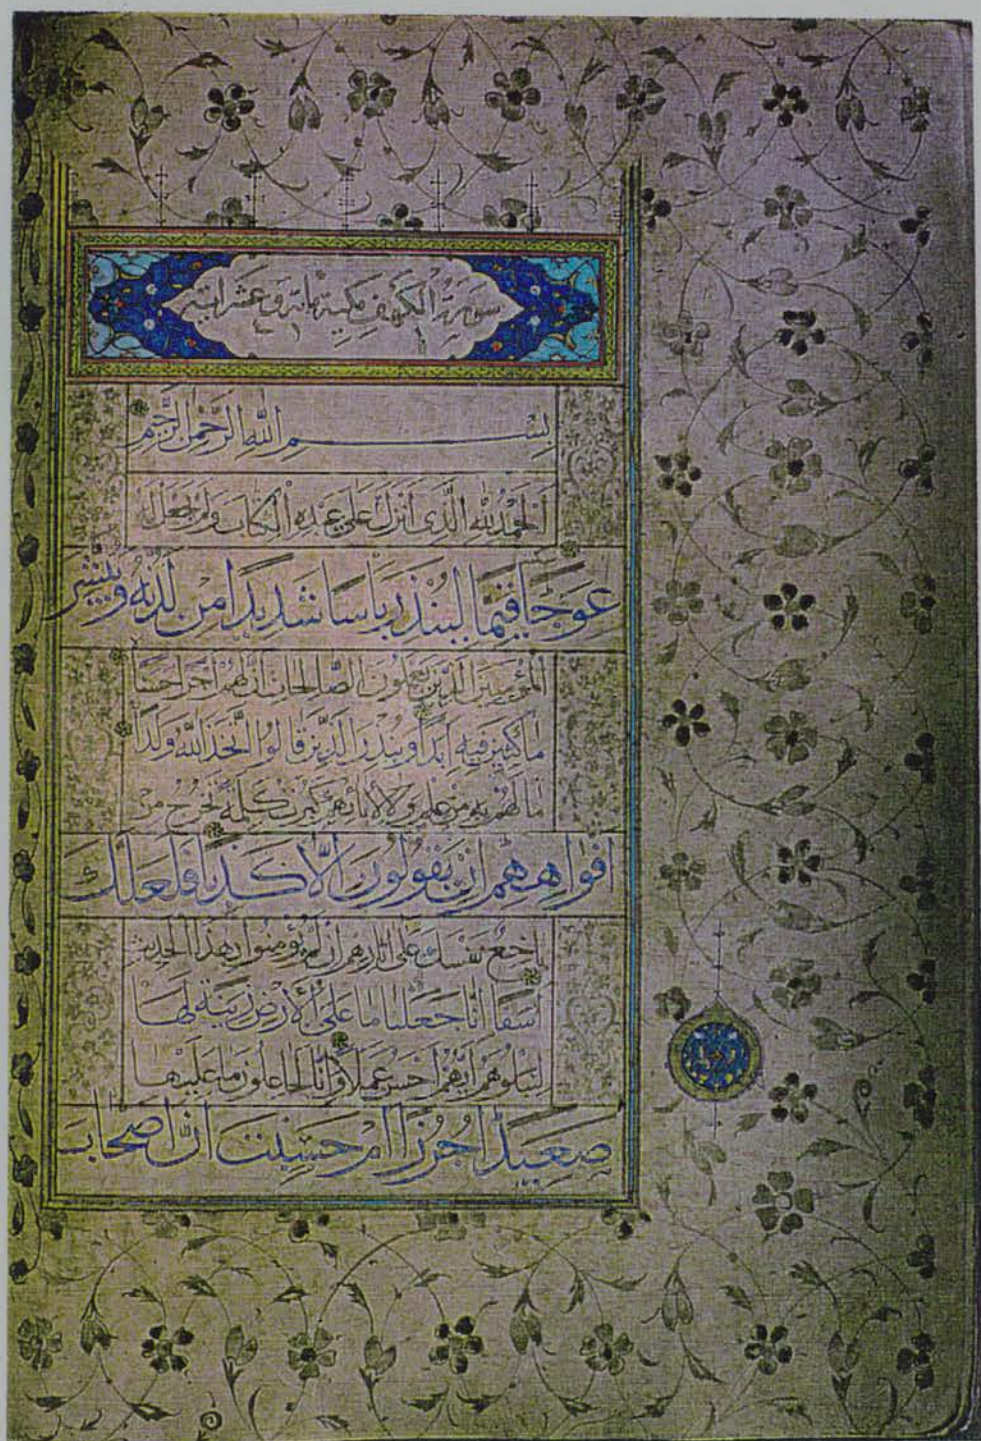 سورة الكهف مكية مائة وعشر آية
بسم الله الرحمن الرحيم
الحمد لله الذي أنزل على عبده الكتاب ولم يجعل له
عوجا قيما لينذر باسا شديدا من لدنه ويبشر
المؤمنين الذين يعملون الصالحات أن لهم أجرا حسنا
ماكثين فيه أبدا وينذر الذين قالوا اتخذ الله ولدا
ما لهم به من علم ولا لآبائهم كبرت كلمة تخرج من
افواههم ان يقولون الا كذبا فلعلك
باخع نفسك على آثارهم إن لم يؤمنوا بهذا الحديث
أسفا إنا جعلنا ما على الأرض زينة لها
لنبلوهم أيهم أحسن عملا وإنا لجاعلون ما عليها
صعيدا جرزا ام حسبت ان اصحاب